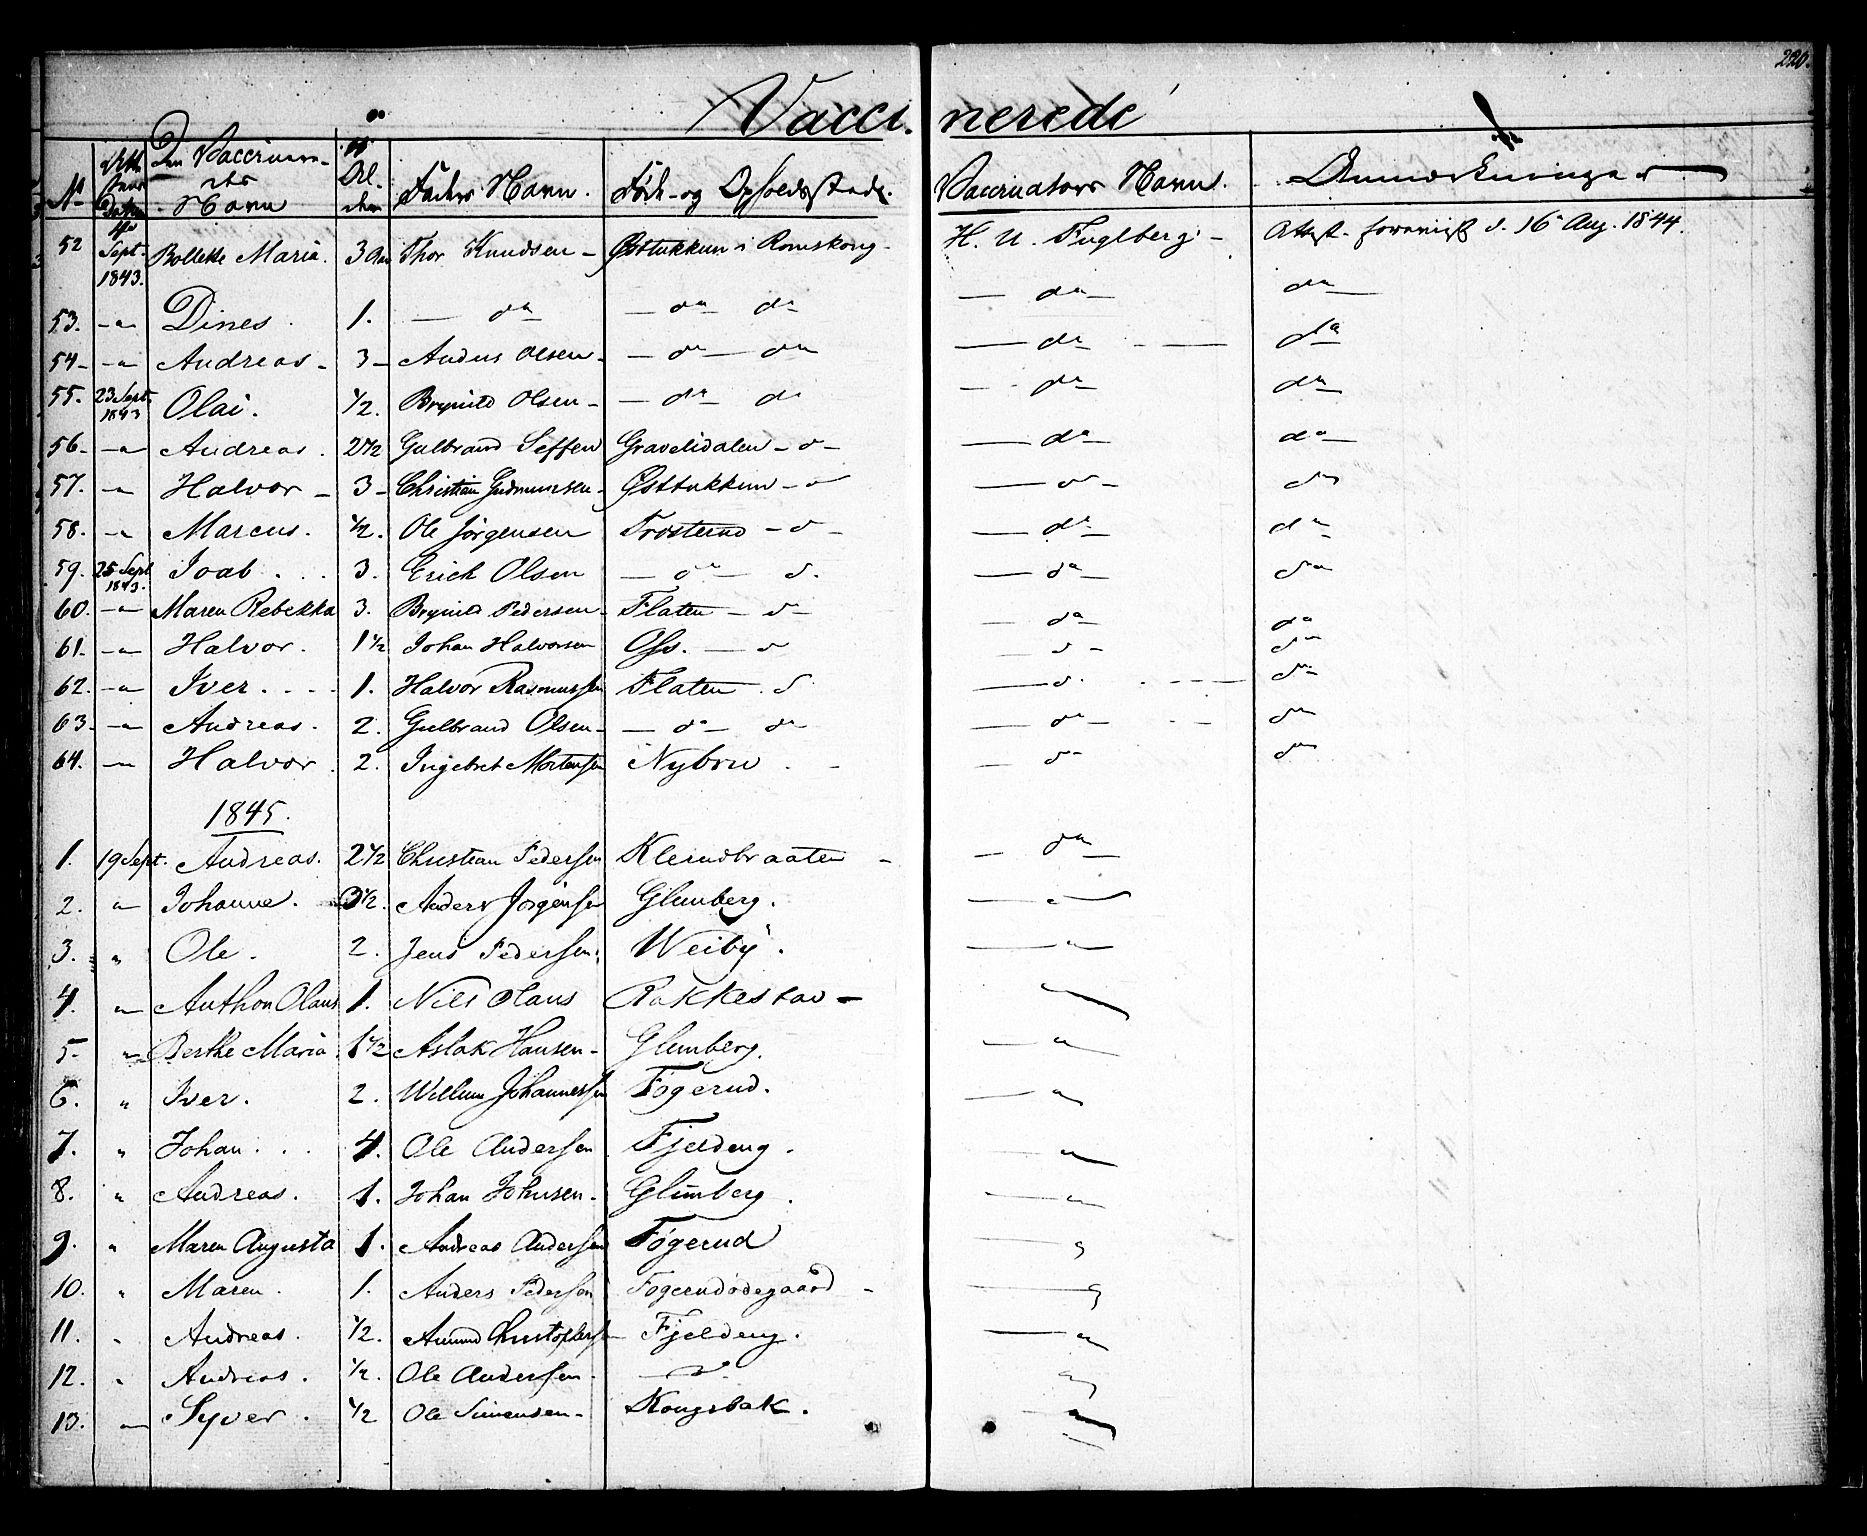 220.
Vacci- nerede
No Den Vaccinere-des Navn Al-der Faders Navn. Föde- og Opholdssted. Vaccinators Navn. Anmærkninger
52 Sept. 1843. Bollette Maria. 3 Aar Thor Knudsen - i Romskoug - H. U. Fuglberg - Attest d. 16 Aug. 1844.
53. -"- Dines. 1. - do - do do - do - do -
54 - -"- Andreas - 3 - Olsen - - do - do - do - do
55. 23 Sept. 1843 Olai. 1/2. Brynild Olsen - - do - do - do - do
56. -"- Andreas. 2 1/2 Gulbrand Gravelidalen - d - - do - do -
57. -"- Halvor - 3 - Christian Gudmunsen - - d - d - do
58. -"- Marcus. 1/2. Ole Jörgensen Trosterud - d - - do - do
59. 25 Sept 1843. Joab. 3. Erich Olsen - do - d. - do - do
60. -"- Maren Rebekka 3. Brynild Pedersen - Flaten - d - - do - do
61. -"- Halvor. 1 1/2 Johan Halvorsen - d - d - do
62. -"- Iver. 1. Halvor Rasmussen Flaten. d - d. do
63. -"- Andreas. 2. Gulbrand Olsen - - do - do - do - do
64. -"- Halvor 2. Ingebret Mortensen Nybru - do do
1845.
1. 19 Sept. Andreas. 2 1/2 Christian Pedersen Klerudbraaten - - do -
2. " Johanne. 3 1/2. Anders Jörgensen Glumberg. - " -
3. " Ole. 2. Jens Pedersen. Weiby. - " -
4. " Anthon Olaus 1. Nils Olaus Rakkestad -
5 - " Berthe Maria. 1 1/2 Aslak Hansen - Glumberg. - " -
6. " Iver. 2. Willum Johannessen Fögerud. - " -
7. " Johan. 4. Ole Andersen Fjeldeng. - " -
8. " Andreas. 1. Johan Johnsen. Glumberg. - " -
9. " Maren Augusta 1. Andreas Andersen Fögerud - "
10. " Maren. 1. Anders Pedersen Fögerudödegaard - - "
11. " Andreas. 1/2. Amund Christophersen Fjeldeng. - "
12. " Andreas. 1/2. Ole Andersen. - do. "
13. " Syver. 1/2 Ole Simensen - Kougsbak. - " -